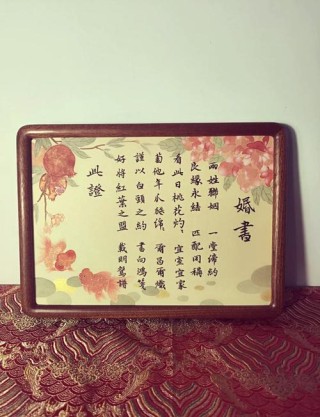 婚書
兩姓聯姻 一堂締約
良緣永結 匹配同稱
看此日桃花灼々 宜室宜家
蔔他年瓜瓞綿々 爾昌爾熾
謹以白頭之約 書向鴻箋
好將紅葉之盟 載明鴛譜
此證